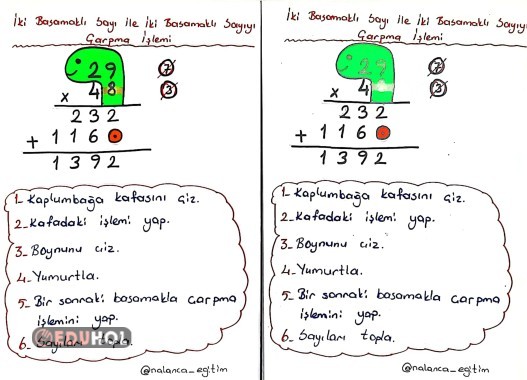 İki Basamaklı Sayı ile İki Basamaklı Sayıyı
Çarpma İşlemi
29
7
x 48
3
232
+ 1160
1392
1- Kaplumbağa kafasını çiz.
2- Kafadaki işlemi yap.
3- Boynunu çiz.
4- Yumurtla.
5- Bir sonraki basamakla çarpma
işlemini yap.
6- Sayıları topla.
EDUHOL
@nalanca_egitim
İki Basamaklı Sayı ile İki Basamaklı Sayıyı
Çarpma İşlemi
29
7
x 4
3
232
+ 116
1392
1- Kaplumbağa kafasını çiz.
2- Kafadaki işlemi yap.
3- Boynunu çiz.
4- Yumurtla.
5- Bir sonraki basamakla çarpma
işlemini yap.
6- Sayıları topla.
@nalanca_egitim